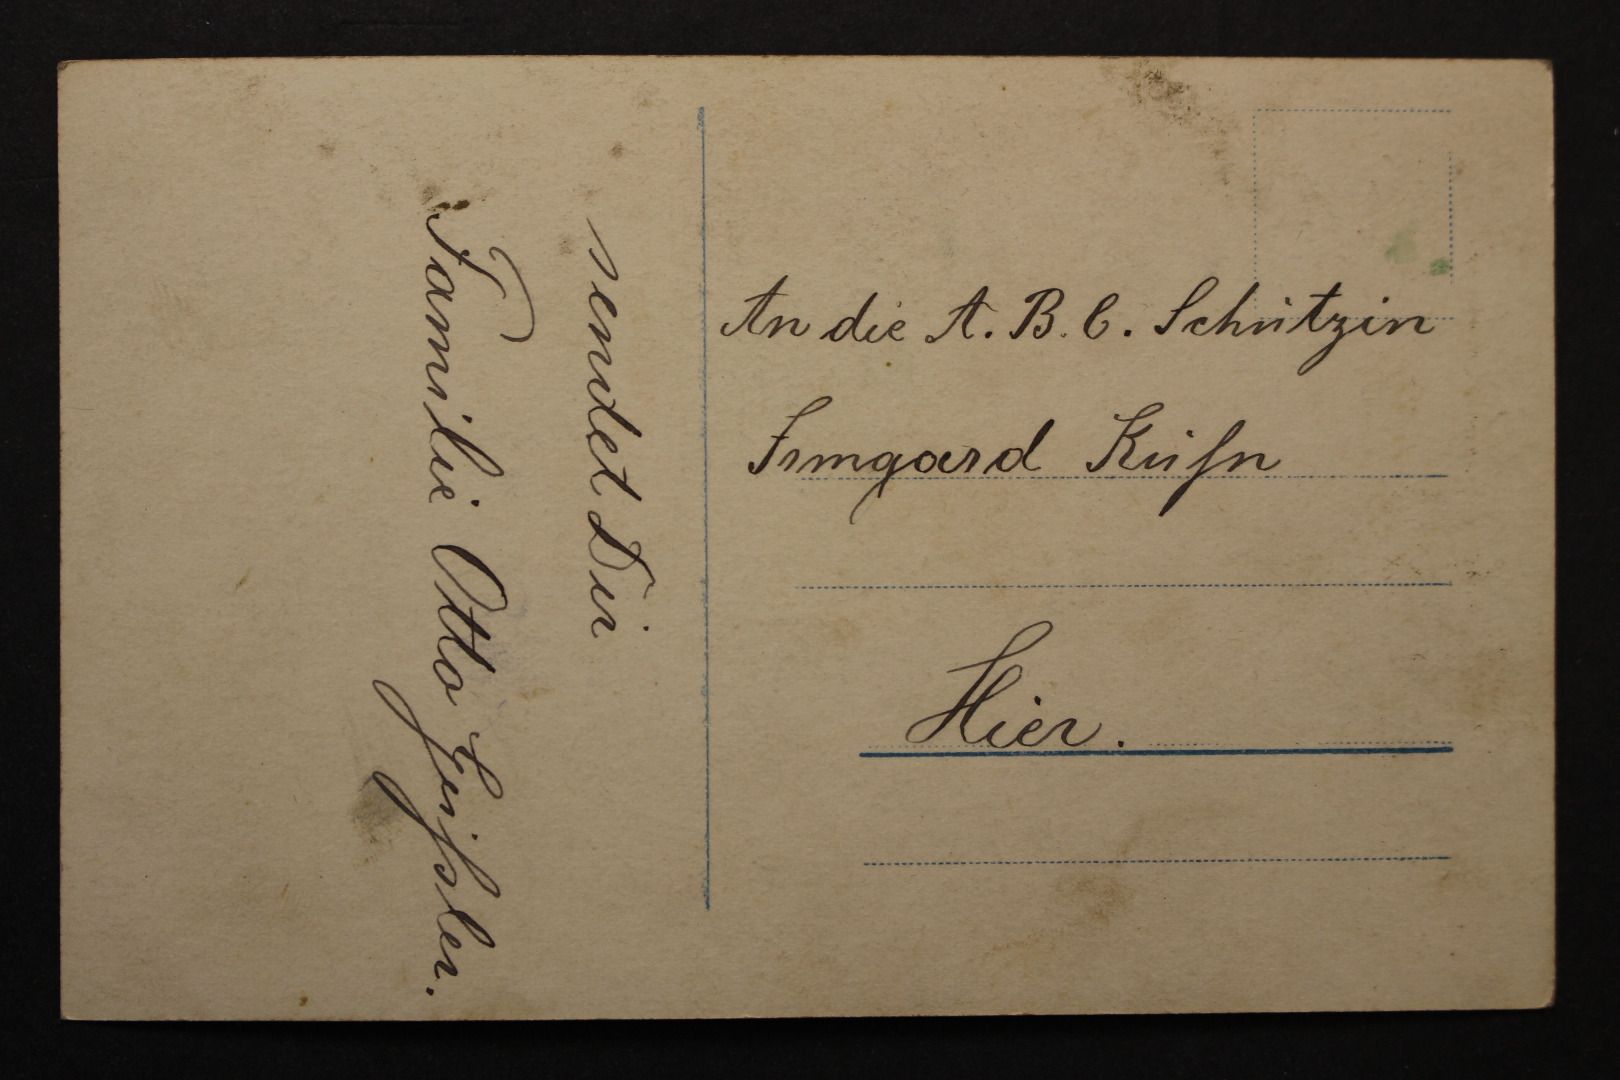 sendet Dir
Familie Otto Geißler.
An die A. B. C. Schützin
Irmgard
Hier.